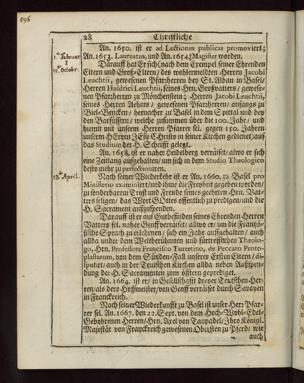 28 Christliche
An. 1650. ist er ad Lectiones publicas promoviert;
An. 1653. Laureatus, und An. 1654. Magister worden.
Darauff hat Er sich nach dem Exempel seiner Ehrenden
Eltern und Groß-Eltern/ des wohlermeldten Herren Jacobi
Leuchtii, gewesenen Pfarrherrn bey St. Alban in Basel/
Herren Huldrici Leuchtii, seines Hrn. Großvatters/ gewese-
nen Pfarrherrn zu Mönchenstein; Herren Jacobi Leuchtii,
seines Herren Aehnis/ gewesenen Pfarrherrn/ anfangs zu
Biel-Bencken/ hernacher zu Basel in dem Spittal und bey
den Barfüssern/ welche zusammen über die 100. Jahr/ und
hiemit mit unserm Herren Pfarrer sel. gegen 150. Jahren
dem HErren JEsu Christo in seiner Kirchen gedienet/ auf
das Studium der H. Schrifft gelegt.
An. 1658. ist er naher Heidelberg verräist/ allwo er sich
eine Zeitlang aufgehalten/ um sich in dem Studio Theologico
desto mehr zu perfectionieren.
Nach seiner Wiederkunfft ist er An. 1660. zu Basel pro
Ministerio examiniert/ und ihme die Freyheit gegeben worden/
zu sonderbarem Trost und Freude seines geehrten Hrn. Vat-
ters seligen/ das Wort GOttes offentlich zu predigen/ und die
H. Sacrament außzuspenden.
Darauff ist er aus Gutbefinden seines Ehrenden Herren
Vatters sel. naher Genff verräist/ allwo er/ um die Frantzö-
sische Sprach zu erlehrnen/ sich ein Jahr aufgehalten/ auch
allda under dem Weitberühmten und fürtrefflichen Theolo-
go, Hrn. Professore Francisco Turretino, de Peccato Proto-
plastorum, von dem Sünden-Fall unserer Ersten Eltern/ di-
sputiert/ auch in der Teutschen Kirchen allda neben Außspen-
dung der H. Sacramenten zum öfftern geprediget.
An. 1664. ist er/ in Gesellschafft dreyer Teutschen Her-
ren/ als dero Hoffmeister/ von Genff verräist durch Savoyen
in Franckreich.
Nach seiner Wiederkunfft zu Basel ist unser Hr. Pfar-
rer sel. An. 1667. den 22. Sept. von dem Hoch-Wohl-Edel-
Gebohrnen Herren/ Hrn. Apel von Taupadel/ Ihro Königl.
Majestät von Franckreich gewesenen Obersten zu Pferd/ wie
auch